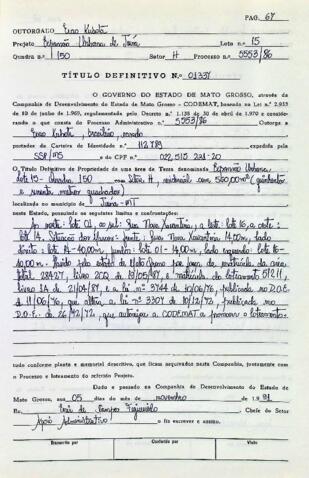 PAG. 67
OUTORGADO Enso Kubota
Projeto Expansão Urbana de Juína Lote n.° 15
Quadra n.° 150 Setor H Processo n.° 5553/86
TÍTULO DEFINITIVO N.° 01337
O GOVERNO DO ESTADO DE MATO GROSSO, através da
Companhia de Desenvolvimento do Estado de Mato Grosso - CODEMAT, baseada na Lei n.°
10 de junho de 1969, regulamentada pelo Decreto n.° 1.138 de 30 de abril de 1970 e considerando
o que consta do Processo Administrativo n.° 5553/86 Outorga a
Enso Kubota, brasileiro, casado
portador da Carteira de Identidade n.° 112789 expedida pela
SSP/MS e do CPF n.° 022.515.221-20
O Título Definitivo de Propriedade de uma área de Terra denominada Expansão Urbana
lote 15 - Quadra 150 Setor H, residencial com 560,00m² (quinhentos
e sessenta metros quadrados)
localizada no município de Juína - MT
neste Estado, possuindo os seguintes limites e confrontações:
Ao norte: lote 01, ao sul: Rua Nova Xavantina, a leste: lote 16, a oeste:
lote 14. frente: Rua Nova Xavantina 14,00m, lado
direito: lote 14 - 40,00m, fundos: lote 01 - 14,00m, lado esquerdo: lote 16
40,00m. Estado de Mato Grosso matrícula da área
total 28427, livro 2CQ de 19/05/87, e matrícula do loteamento
livro 1A de 21/04/87, e lei nº 3744 de 10/06/76, publicada no D.O.E.
de 11/06/76, que altera a lei nº 3307 de 18/12/72, publicada no
D.O.E. de 26/12/72, que autoriza a CODEMAT a promover o loteamento.
tudo conforme planta e memorial descritivo, que ficam arquivados nesta Companhia, juntamente com
o Processo e loteamento do referido Projeto.
Dado e passado na Companhia de Desenvolvimento do Estado de
Mato Grosso, aos 05 dias do mês de novembro de 1991
Eu, de Campos Figueiredo Chefe do Setor
Apoio Administrativo o fiz escrever e assino.
Transcrito por Conferido por Visto